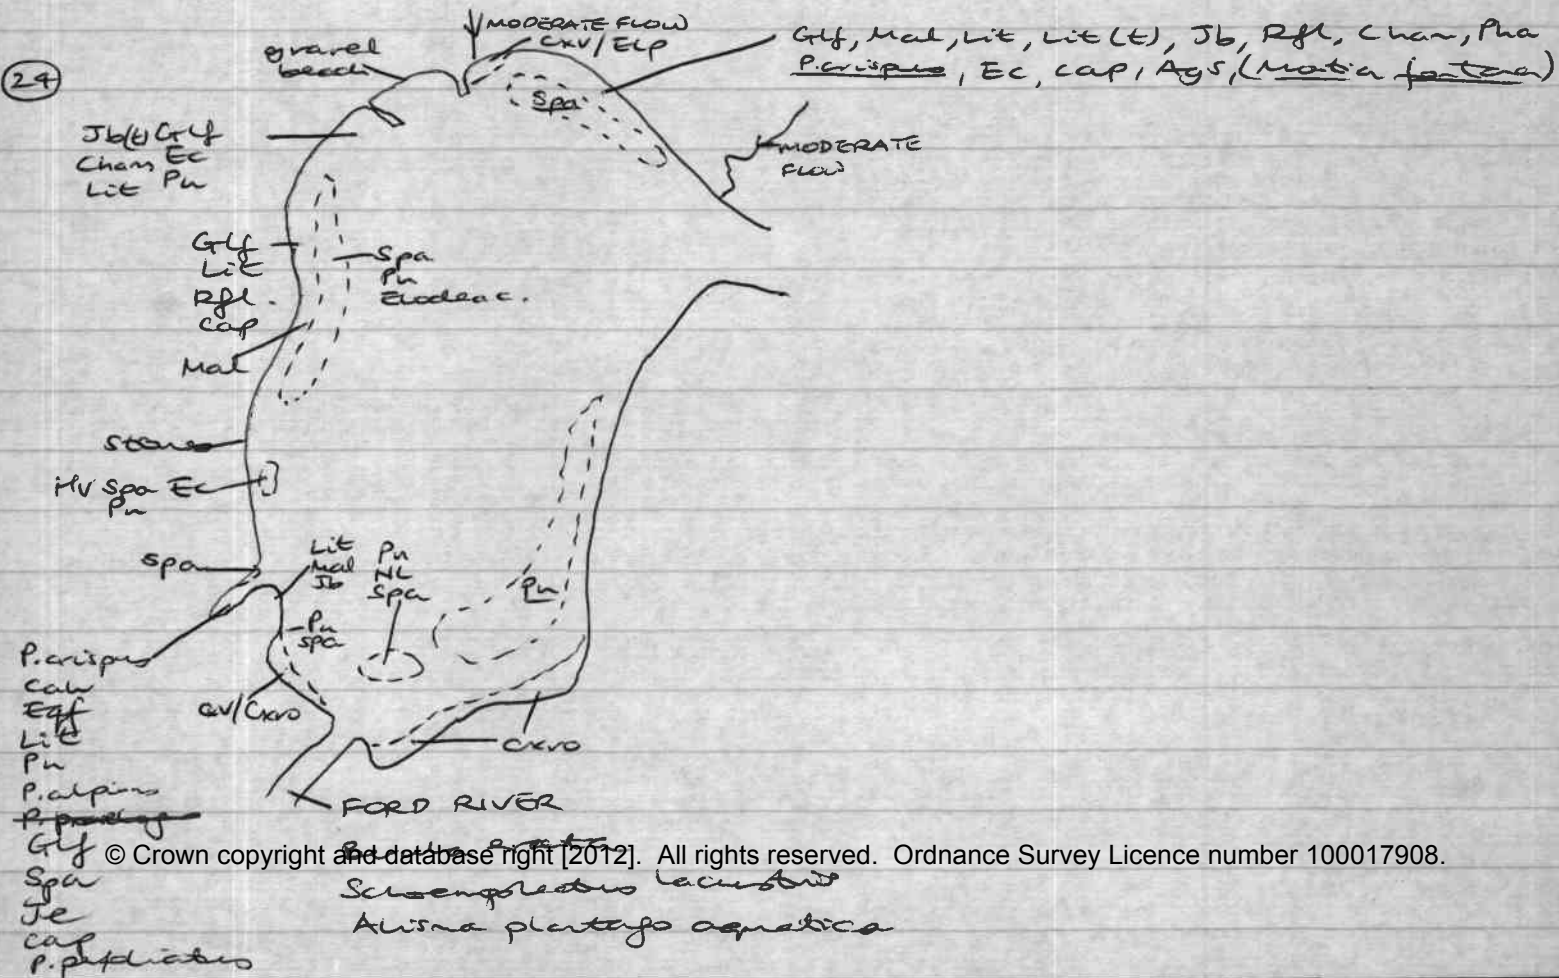 24
gravel
beach
MODERATE FLOW
CXV/ELP
Glf, Mal, Lit, Lit(t), Jb, Rfl, Cham, Pha
P.crispus, Ec, Cap, AgS, (Montia fontana)
Spa
MODERATE
FLOW
Jb(t) Glf
Cham Ec
Lit Pn
Glf
Lit
Rfl.
Cap
Mal
Spa
Pn
Elodea c.
stones
MV Spa Ec
Pn
Spa
Lit
Mal
Jb
Pn
NL
Spa
Pn
Pn
Spa
P.crispus
Eqf
Lit
Pn
P.alpinus
Glf
Spa
Je
Cap
P.perfoliatus
CV/Cxro
Cxro
FORD RIVER
© Crown copyright and database right [2012]. All rights reserved. Ordnance Survey Licence number 100017908.
Schoenoplectus lacustris
Alisma plantago aquatica